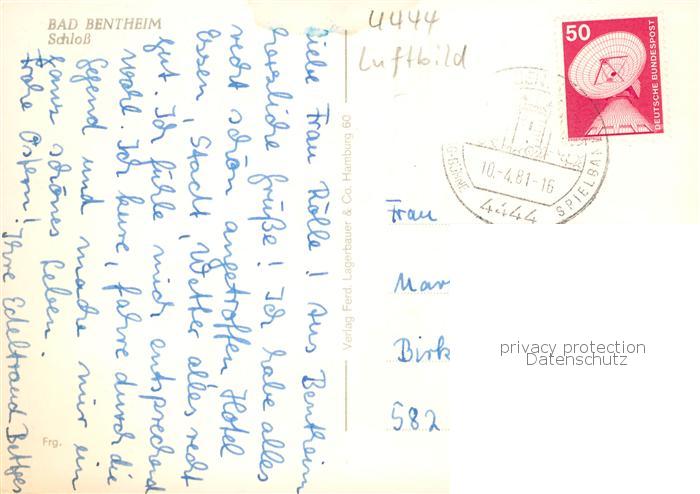 BAD BENTHEIM
Schloß
Liebe Frau Rölle! Aus Bentheim
herzliche Grüße! Ich habe alles
recht schön angetroffen Hotel
Essen, Stadt, Wetter alles recht
gut. Ich fühle mich entsprechend
wohl. Ich kure, fahre durch die
Gegend und mache mir ein
ganz schönes Leben.
Frohe Ostern! Ihre Edeltraud
Frg.
Verlag Ferd. Lagerbauer & Co. Hamburg 60
4444
Luftbild
50
DEUTSCHE BUNDESPOST
10.-4.81-16
4444
SPIELBAN
Frau
Mar
Birk
582
privacy protection
Datenschutz